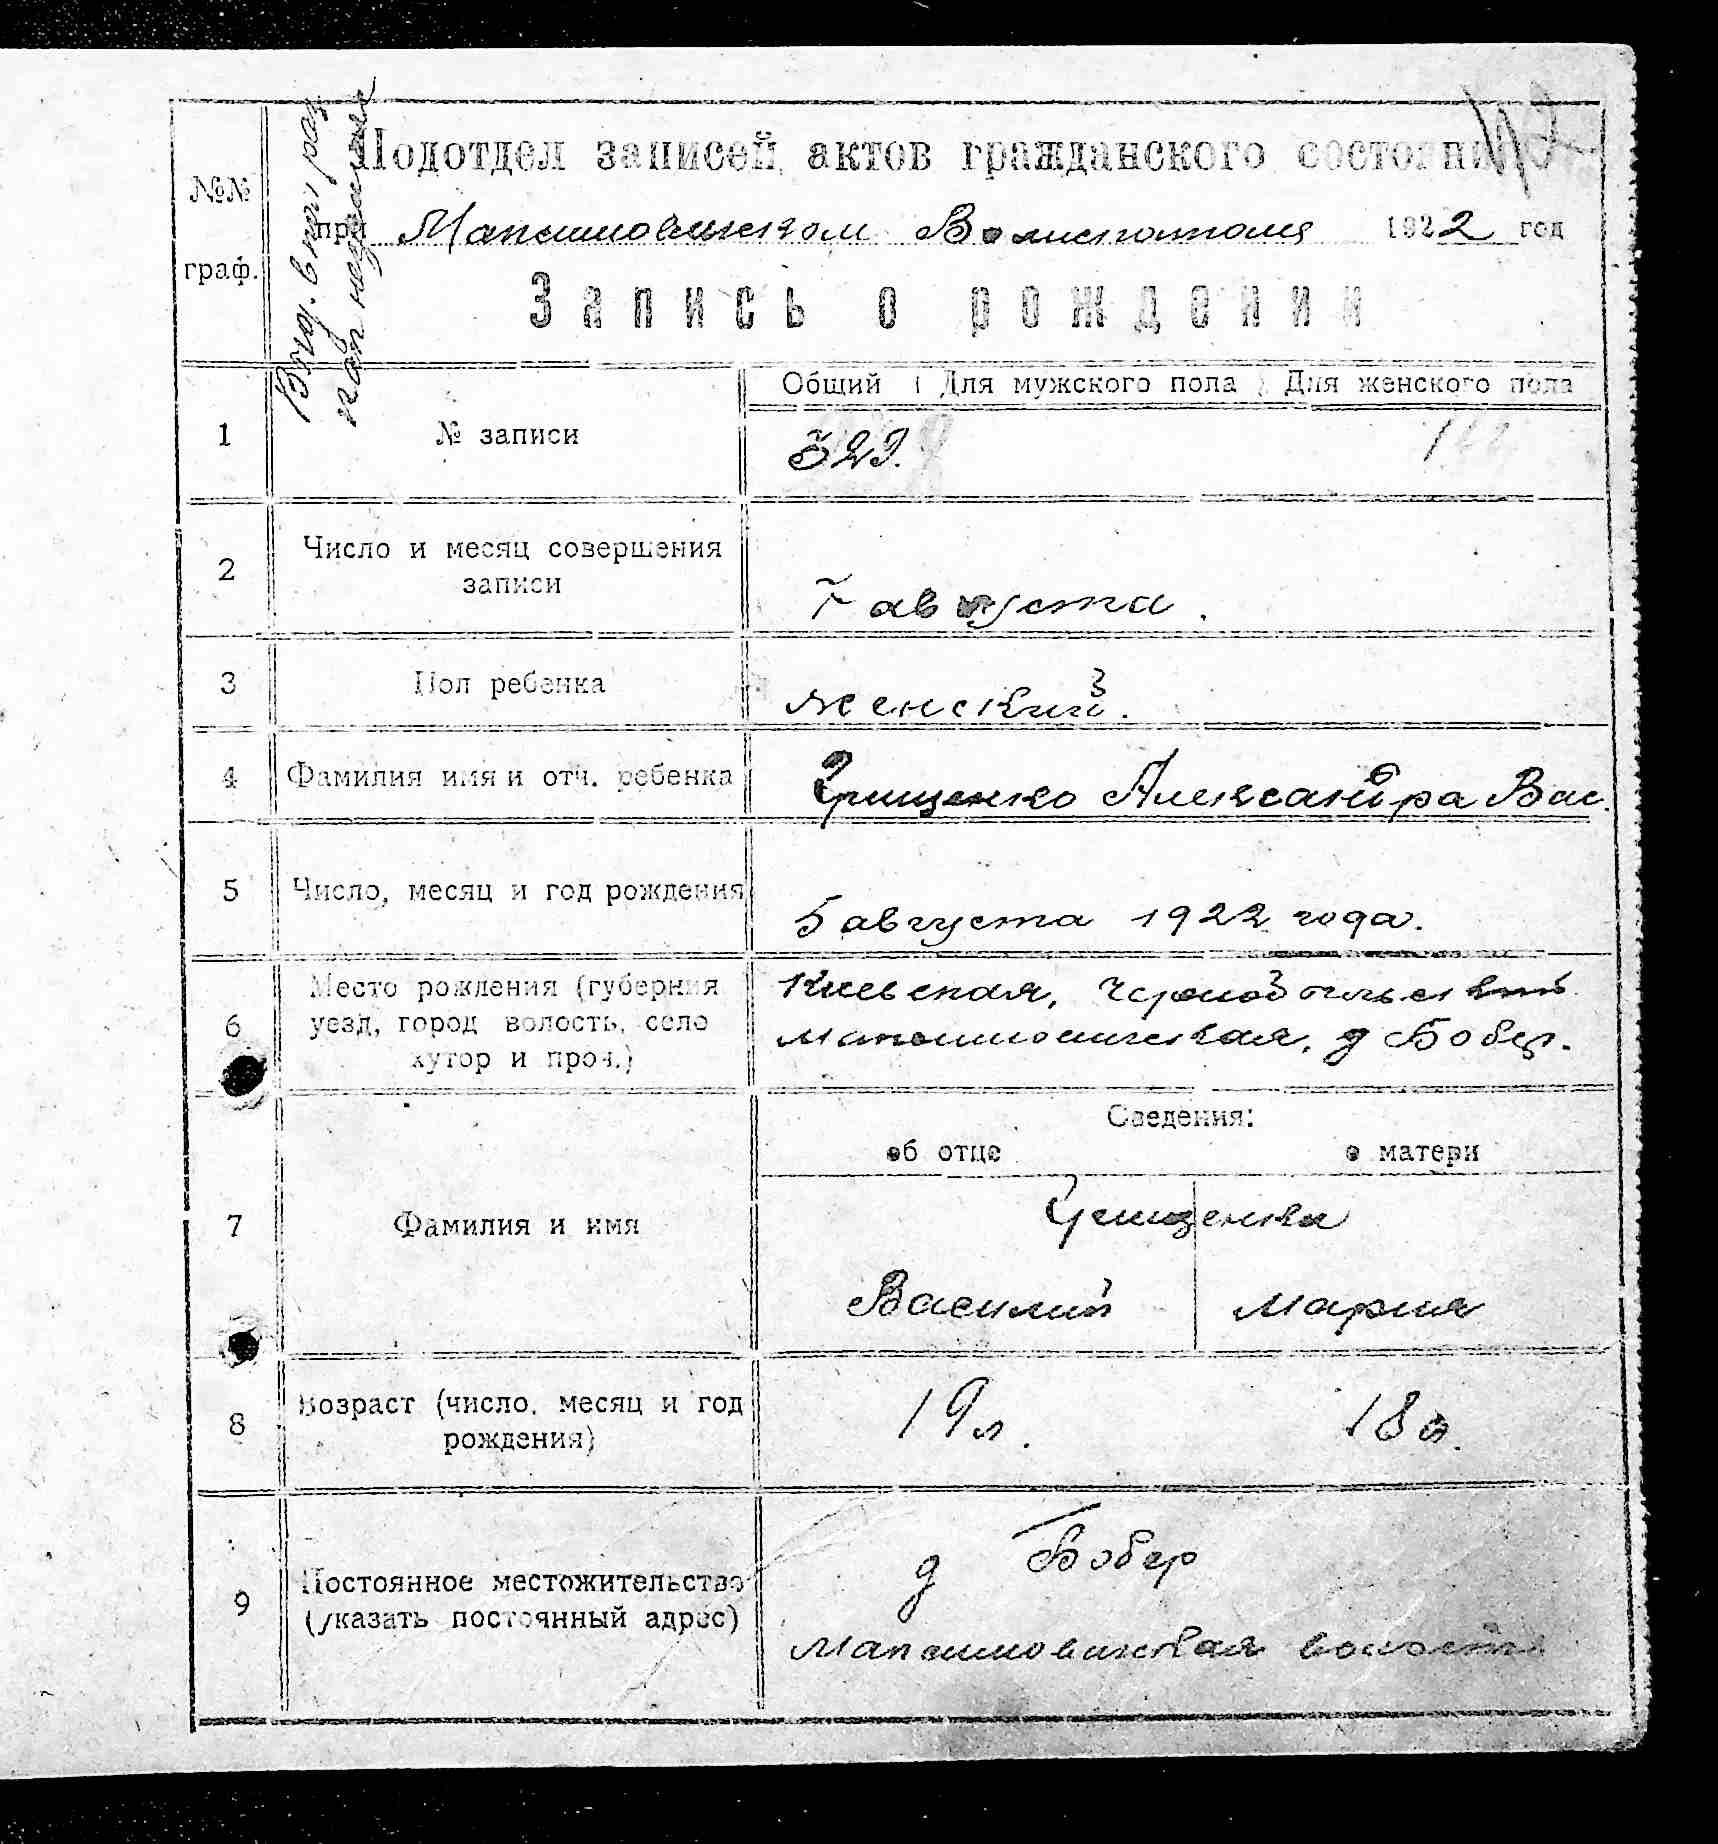 №№
граф.
Подотдел записей актов гражданского состояния
при Максимовическом Волисполкоме 1922 год
Запись о рождении
Общий Для мужского пола Для женского пола
1 № записи 329.
2 Число и месяц совершения
записи
7 августа.
3 Пол ребенка женский.
4 Фамилия имя и отч. ребенка Грищенко Александра Вас.
5 Число, месяц и год рождения 5 августа 1922 года.
6 Место рождения (губерния
уезд, город волость, село
хутор и проч.)
Киевская, Чернобыльский
Максимовическая, д Бобер.
Сведения:
об отце о матери
7 Фамилия и имя
Грищенко
Василий Мария
8 Возраст (число, месяц и год
рождения)
19 л. 18 л.
9 Постоянное местожительство
(указать постоянный адрес)
д Бобер
Максимовическая волость